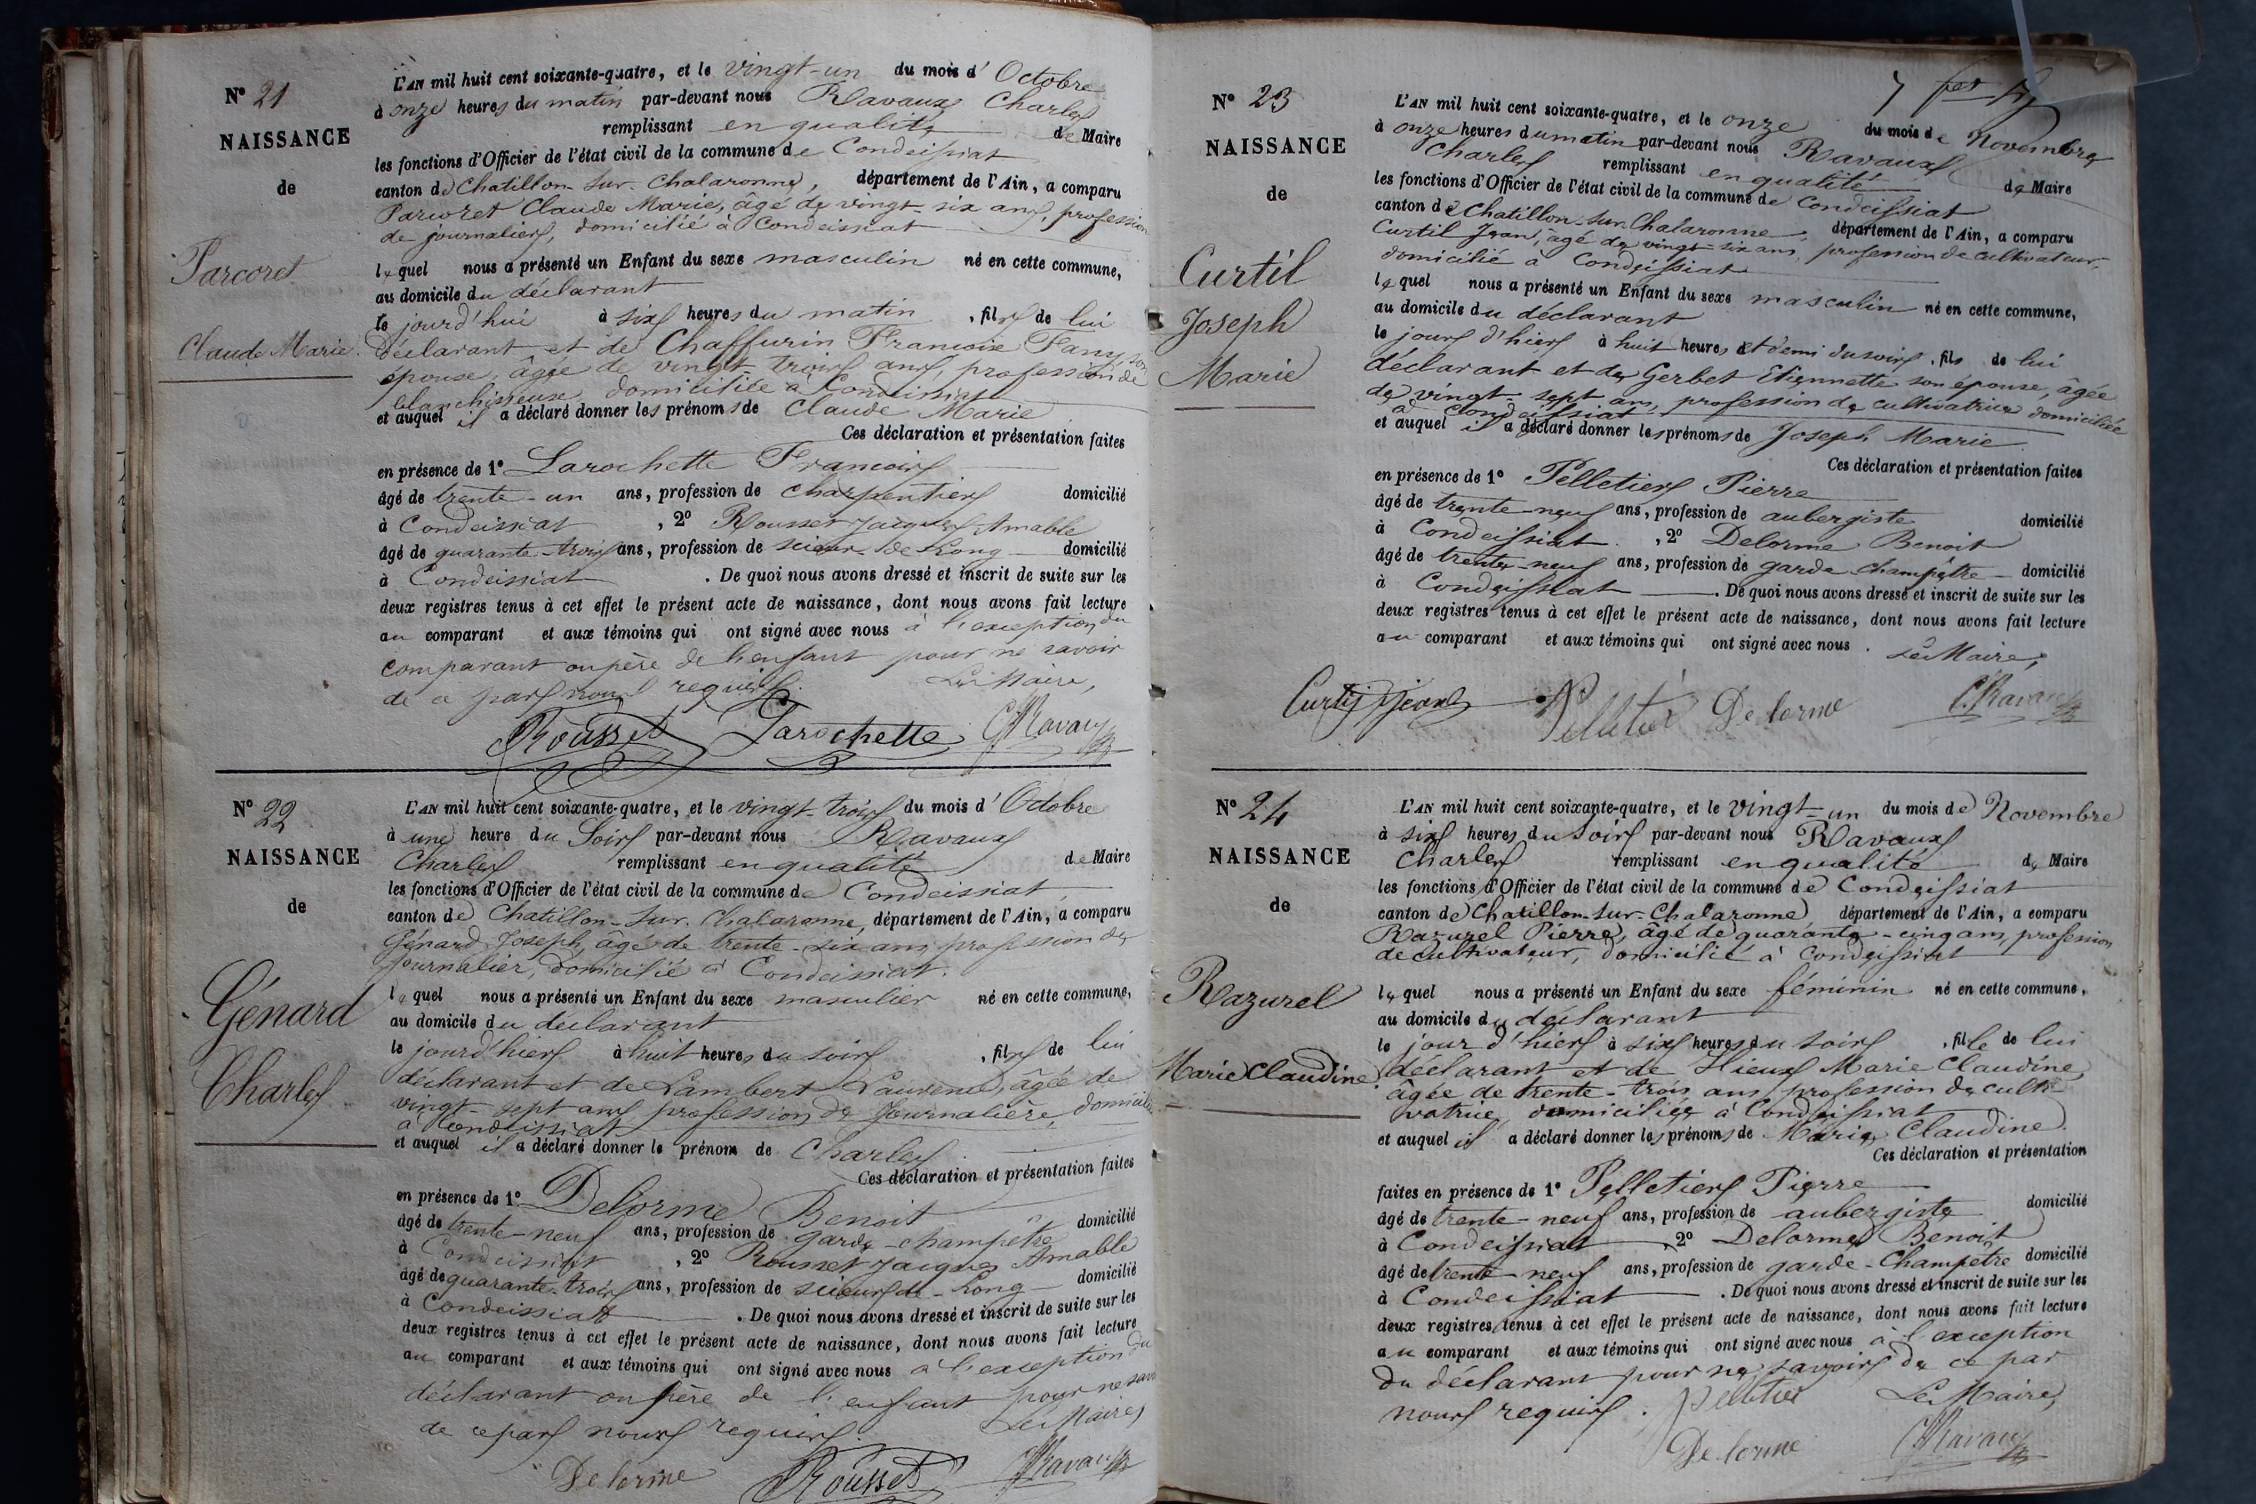 N° 21
NAISSANCE
de
Parcoret
Claude Marie.
L'AN mil huit cent soixante-quatre, et le vingt-un du mois d'Octobre
à onze heures du matin par-devant nous Ravaux Charles
remplissant en qualité de Maire
les fonctions d'Officier de l'état civil de la commune de Condeissiat
canton de Chatillon-sur-Chalaronne, département de l'Ain, a comparu
Parcoret Claude Marie, âgé de vingt-six ans, profession
de journalier, domicilié à Condeissiat
lequel nous a présenté un Enfant du sexe masculin né en cette commune,
au domicile du déclarant
le jourd'hui à six heures du matin, fils de lui
déclarant et de Chaffurin Francoise Fany son
épouse, âgée de vingt-trois ans, profession de
blanchisseuse, domiciliée à Condeissiat
et auquel il a déclaré donner les prénoms de Claude Marie
Ces déclaration et présentation faites
en présence de 1° Larochette Francois
âgé de trente-un ans, profession de charpentier domicilié
à Condeissiat, 2° Rousset Jacques Amable
âgé de quarante-trois ans, profession de scieur-de-Long domicilié
à Condeissiat. De quoi nous avons dressé et inscrit de suite sur les
deux registres tenus à cet effet le présent acte de naissance, dont nous avons fait lecture
au comparant et aux témoins qui ont signé avec nous à l'exception du
comparant ou père de l'enfant pour ne savoir
de ce par nous requis. Le Maire,
Rousset Larochette C. Ravaux
N° 22
NAISSANCE
de
Génard
Charles
L'AN mil huit cent soixante-quatre, et le vingt-trois du mois d'Octobre
à une heure du Soir par-devant nous Ravaux
Charles remplissant en qualité de Maire
les fonctions d'Officier de l'état civil de la commune de Condeissiat
canton de Chatillon-sur-Chalaronne, département de l'Ain, a comparu
Génard Joseph, âgé de trente-six ans, profession de
journalier, domicilié à Condeissiat.
lequel nous a présenté un Enfant du sexe masculier né en cette commune,
au domicile du déclarant
le jourd'hier à huit heures du soir, fils de lui
déclarant et de Lambert Laurence, âgée de
vingt-sept ans profession de Journalière, domiciliée
à Condeissiat
et auquel il a déclaré donner le prénom de Charles
Ces déclaration et présentation faites
en présence de 1° Delorme Benoit
âgé de trente-neuf ans, profession de garde-champêtre domicilié
à Condeissiat, 2° Rousset Jacques Amable
âgé de quarante-trois ans, profession de scieur de-Long domicilié
à Condeissiat. De quoi nous avons dressé et inscrit de suite sur les
deux registres tenus à cet effet le présent acte de naissance, dont nous avons fait lecture
au comparant et aux témoins qui ont signé avec nous à l'exception du
déclarant ou père de l'enfant pour ne savoir
de ce par nous requis. Le Maire,
Delorme Rousset C. Ravaux
N° 23
NAISSANCE
de
Curtil
Joseph
Marie
L'AN mil huit cent soixante-quatre, et le onze du mois de Novembre
à onze heures du matin par-devant nous Ravaux
Charles remplissant en qualité de Maire
les fonctions d'Officier de l'état civil de la commune de Condeissiat
canton de Chatillon-sur-Chalaronne, département de l'Ain, a comparu
Curtil Jean, âgé de vingt-six ans, profession de cultivateur,
domicilié à Condeissiat
lequel nous a présenté un Enfant du sexe masculin né en cette commune,
au domicile du déclarant
le jour d'hier à huit heures et demi du soir, fils de lui
déclarant et de Gerbet Etiennette son épouse, âgée
de vingt-sept ans, profession de cultivatrice domiciliée
à Condeissiat
et auquel il a déclaré donner les prénoms de Joseph Marie
Ces déclaration et présentation faites
en présence de 1° Pelletier Pierre
âgé de trente-neuf ans, profession de aubergiste domicilié
à Condeissiat, 2° Delorme Benoit
âgé de trente-neuf ans, profession de garde-champêtre domicilié
à Condeissiat. De quoi nous avons dressé et inscrit de suite sur les
deux registres tenus à cet effet le présent acte de naissance, dont nous avons fait lecture
au comparant et aux témoins qui ont signé avec nous. Le Maire,
Curtil Jean Pelletier Delorme C. Ravaux
N° 24
NAISSANCE
de
Razurel
Marie Claudine
L'AN mil huit cent soixante-quatre, et le vingt-un du mois de Novembre
à six heures du soir par-devant nous Ravaux
Charles remplissant en qualité de Maire
les fonctions d'Officier de l'état civil de la commune de Condeissiat
canton de Chatillon-sur-Chalaronne département de l'Ain, a comparu
Razurel Pierre, âgé de quarante-cinq ans, profession
de cultivateur, domicilié à Condeissiat
lequel nous a présenté un Enfant du sexe féminin né en cette commune,
au domicile du déclarant
le jour d'hier à six heures du soir, fille de lui
déclarant et de Hieux Marie Claudine,
âgée de trente-trois ans profession de culti-
vatrice, domiciliée à Condeissiat
et auquel il a déclaré donner les prénoms de Marie Claudine.
Ces déclaration et présentation
faites en présence de 1° Pelletier Pierre
âgé de trente-neuf ans, profession de aubergiste domicilié
à Condeissiat, 2° Delorme Benoit
âgé de trente-neuf ans, profession de garde-Champêtre domicilié
à Condeissiat. De quoi nous avons dressé et inscrit de suite sur les
deux registres tenus à cet effet le présent acte de naissance, dont nous avons fait lecture
au comparant et aux témoins qui ont signé avec nous à l'exception
du déclarant pour ne savoir de ce par
nous requis. Pelletier Le Maire,
Delorme C. Ravaux